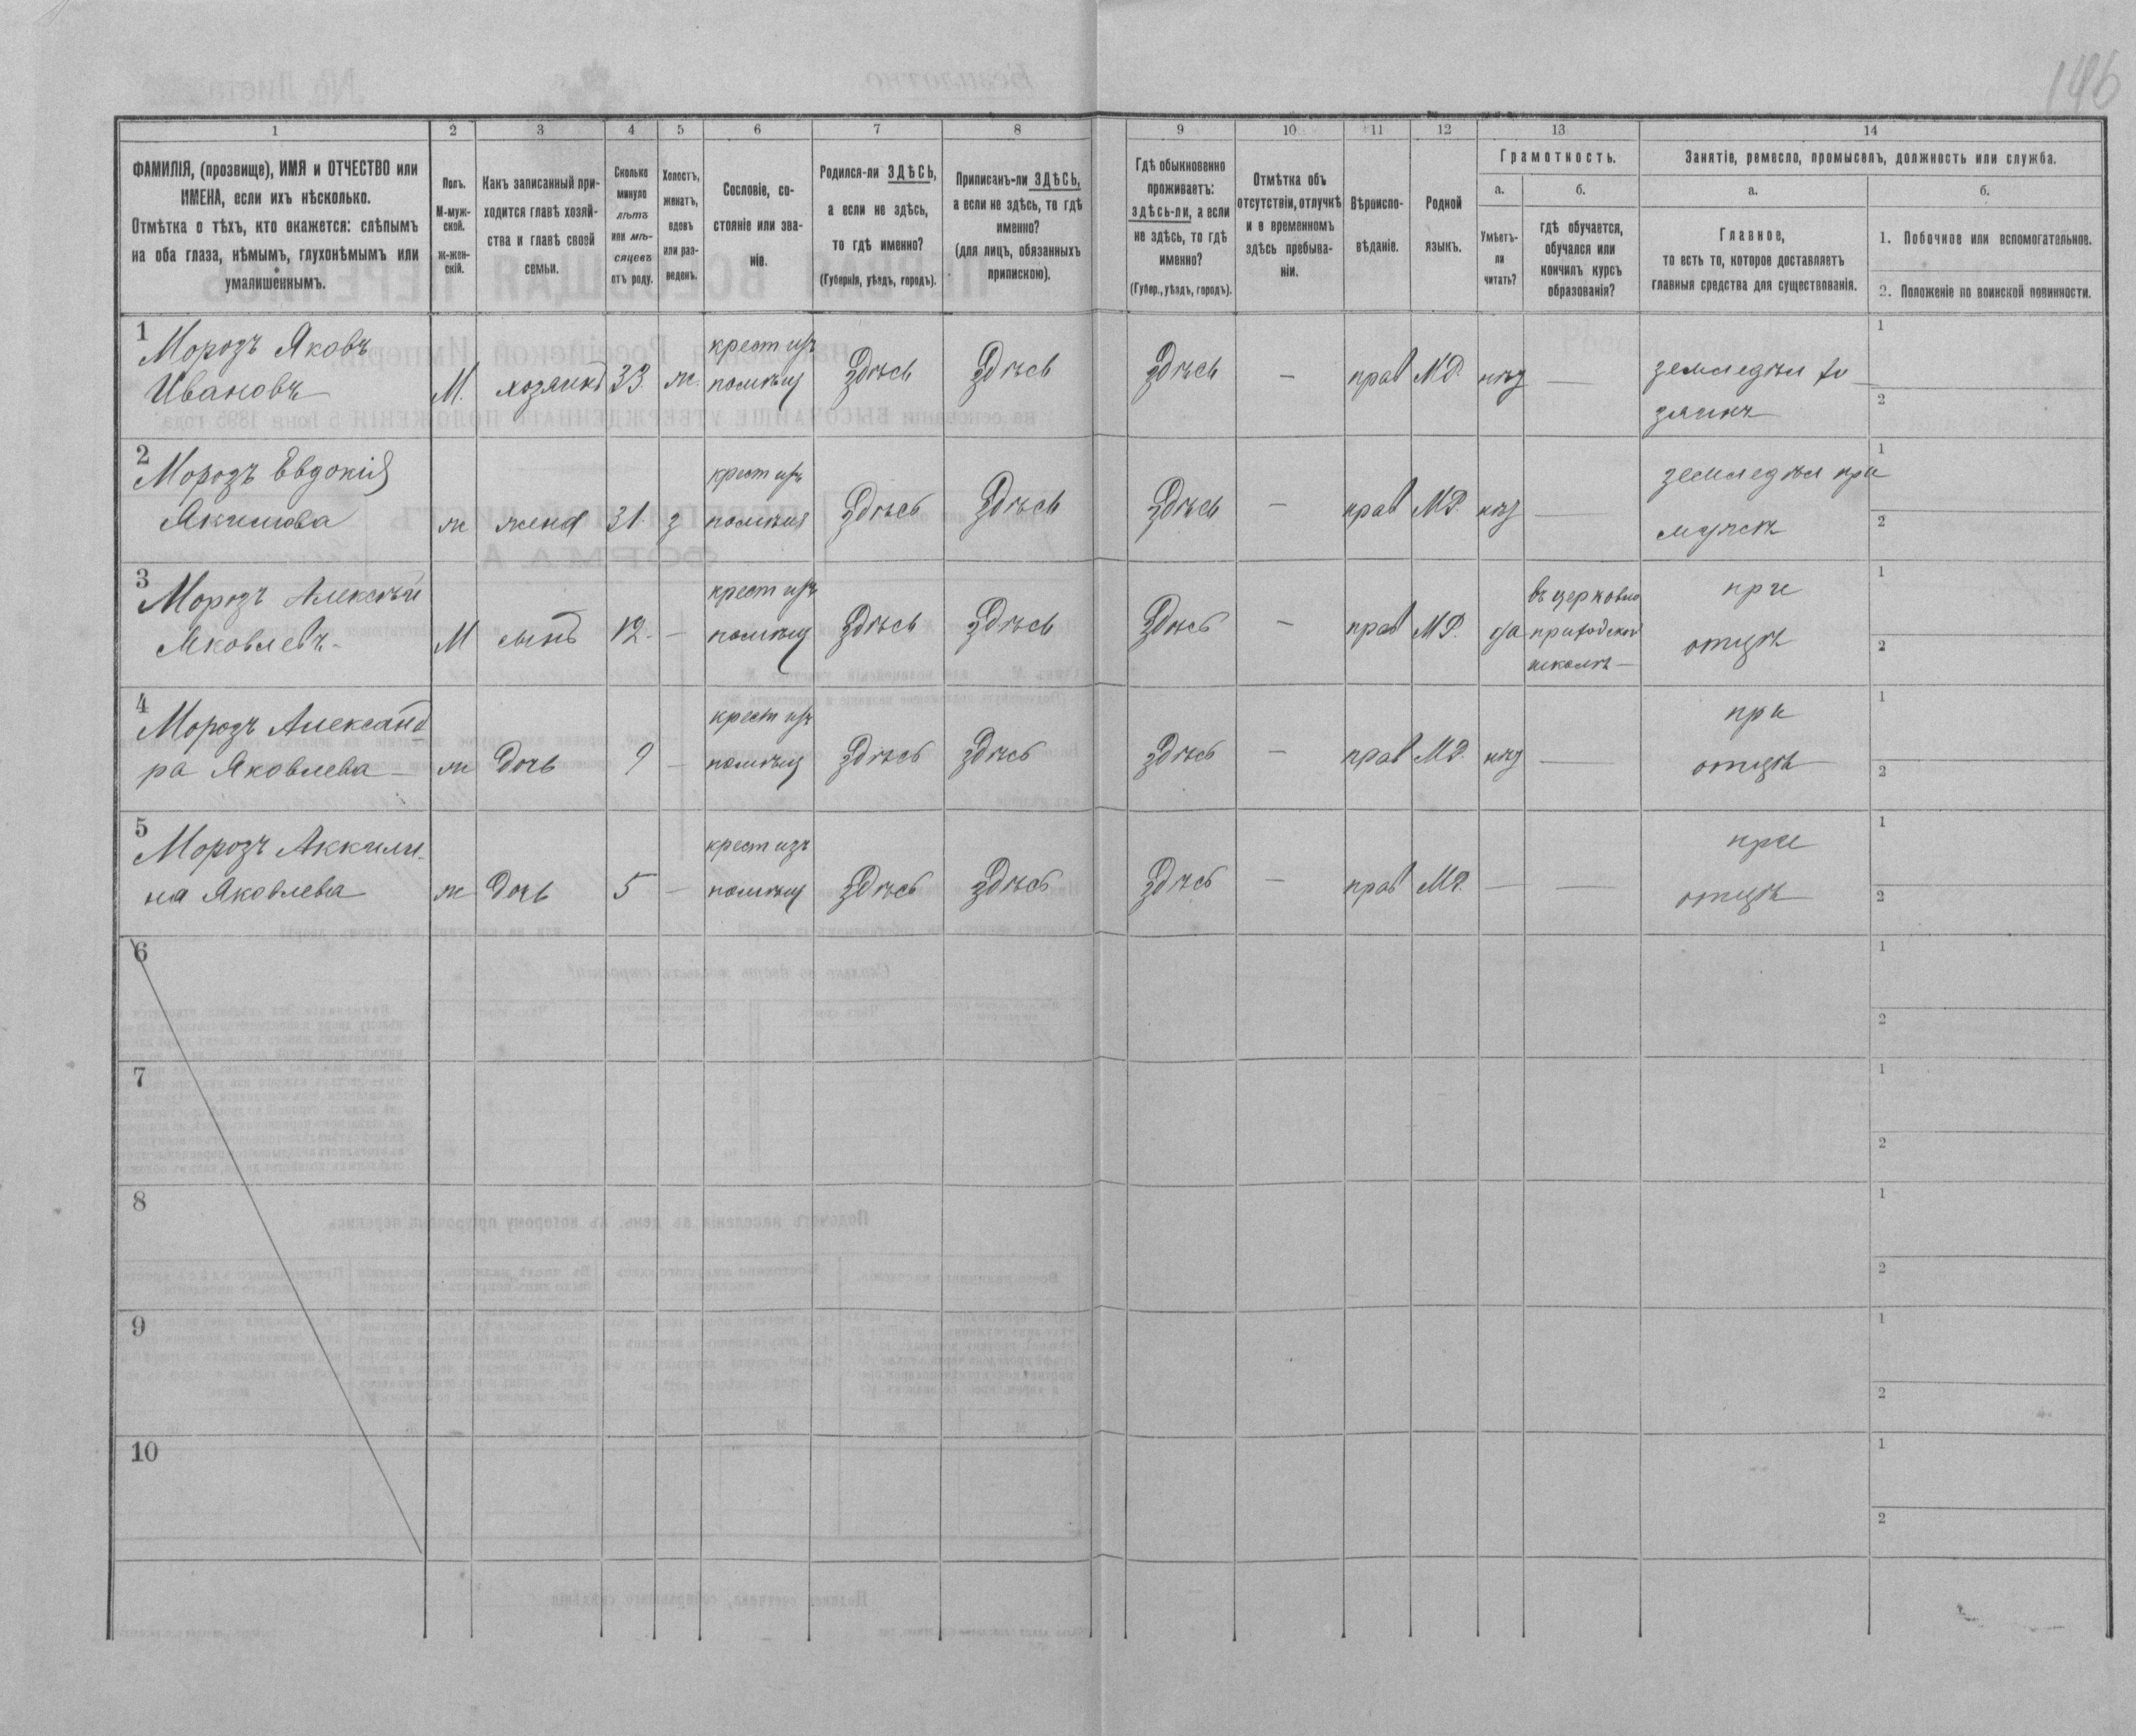 146
1 2 3 4 5 6 7 8 9 10 11 12 13 14
ФАМИЛІЯ, (прозвище), ИМЯ и ОТЧЕСТВО или
ИМЕНА, если ихъ нѣсколько.
Отмѣтка о тѣхъ, кто окажется: слѣпымъ
на оба глаза, нѣмымъ, глухонѣмымъ или
умалишеннымъ.
Полъ.
М-муж-
ской.
Ж-жен-
скій.
Какъ записанный при-
ходится главѣ хозяй-
ства и главѣ своей
семьи.
Сколько
минуло
лѣтъ
или мѣ-
сяцевъ
отъ роду.
Холостъ,
женатъ,
вдовъ
или раз-
веденъ.
Сословіе, со-
стояніе или зва-
ніе.
Родился-ли ЗДѢСЬ,
а если не здѣсь,
то гдѣ именно?
(Губернія, уѣздъ, городъ).
Приписанъ-ли ЗДѢСЬ,
а если не здѣсь, то гдѣ
именно?
(для лицъ, обязанныхъ
припискою).
Гдѣ обыкновенно
проживаетъ:
здѣсь-ли, а если
не здѣсь, то гдѣ
именно?
(Губер., уѣздъ, городъ).
Отмѣтка объ
отсутствіи, отлучкѣ
и о временномъ
здѣсь пребыва-
ніи.
Вѣроиспо-
вѣданіе.
Родной
языкъ.
Грамотность.
а.
Умѣетъ-
ли
читать?
б.
гдѣ обучается,
обучался или
кончилъ курсъ
образованія?
Занятіе, ремесло, промыселъ, должность или служба.
а.
Главное,
то есть то, которое доставляетъ
главныя средства для существованія.
б.
1. Побочное или вспомогательное.
2. Положеніе по воинской повинности.
1
Морозъ Яковъ
Ивановъ
М. хозяинъ 33. ж.
крест изъ
помѣщ
Здѣсь Здѣсь Здѣсь — прав МР. нѣт —
земледѣл хо
зяинъ
1
2
2
Морозъ Евдокія
Якимова
ж жена 31. з
крест изъ
помѣщ
Здѣсь Здѣсь Здѣсь — прав МР. нѣт —
земледѣл при
мужѣ
1
2
3
Морозъ Алексѣй
Яковлевъ
М сынъ 12. —
крест изъ
помѣщ
Здѣсь Здѣсь Здѣсь — прав МР. да
въ церковно
приходской
школѣ
при
отцѣ
1
2
4
Морозъ Александ
ра Яковлева
ж дочь 9 —
крест изъ
помѣщ
Здѣсь здѣсь здѣсь — прав МР. нѣт —
при
отцѣ
1
2
5
Морозъ Аккили-
на Яковлева
ж дочь 5 —
крест изъ
помѣщ
здѣсь здѣсь здѣсь — прав МР. — —
при
отцѣ
1
2
6
1
2
7
1
2
8
1
2
9
1
2
10
1
2